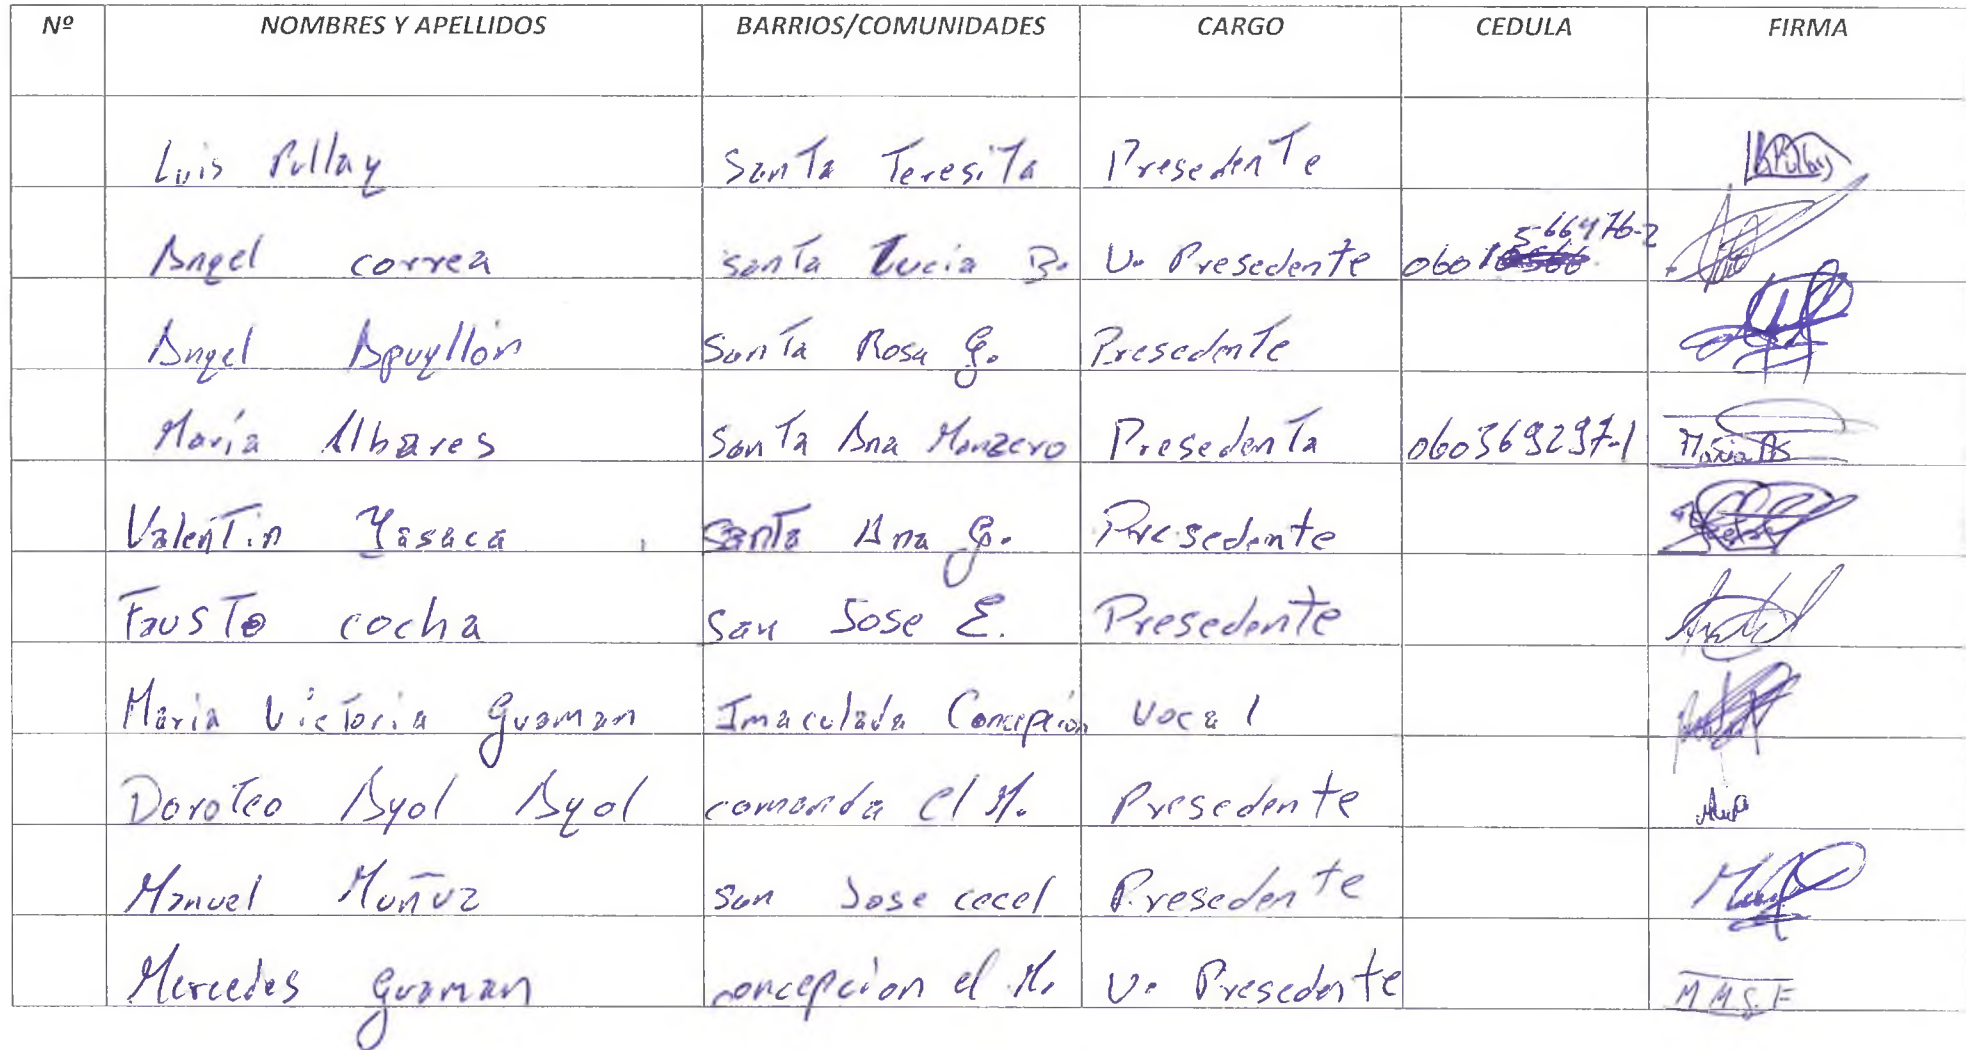 Nº NOMBRES Y APELLIDOS BARRIOS/COMUNIDADES CARGO CEDULA FIRMA
Luis Pullay Santa Teresita Presedente
Angel correa Santa Lucia B. V. Presedente 0601 5-66476-2
Angel Santa Rosa G. Presedente
María Albares Santa Ana Manzero Presedenta 060369297-1 Maria
Valentin Yasaca Santa Ana G. Presedente
Fausto cocha San Jose E. Presedente
Maria Victoria Guaman Imaculada Concepcion Vocal
Doroteo Ayol Ayol comunida el M. Presedente
Manuel Muñuz San Jose cecel Presedente
Mercedes Guaman concepcion el M. V. Presedente M M G. F